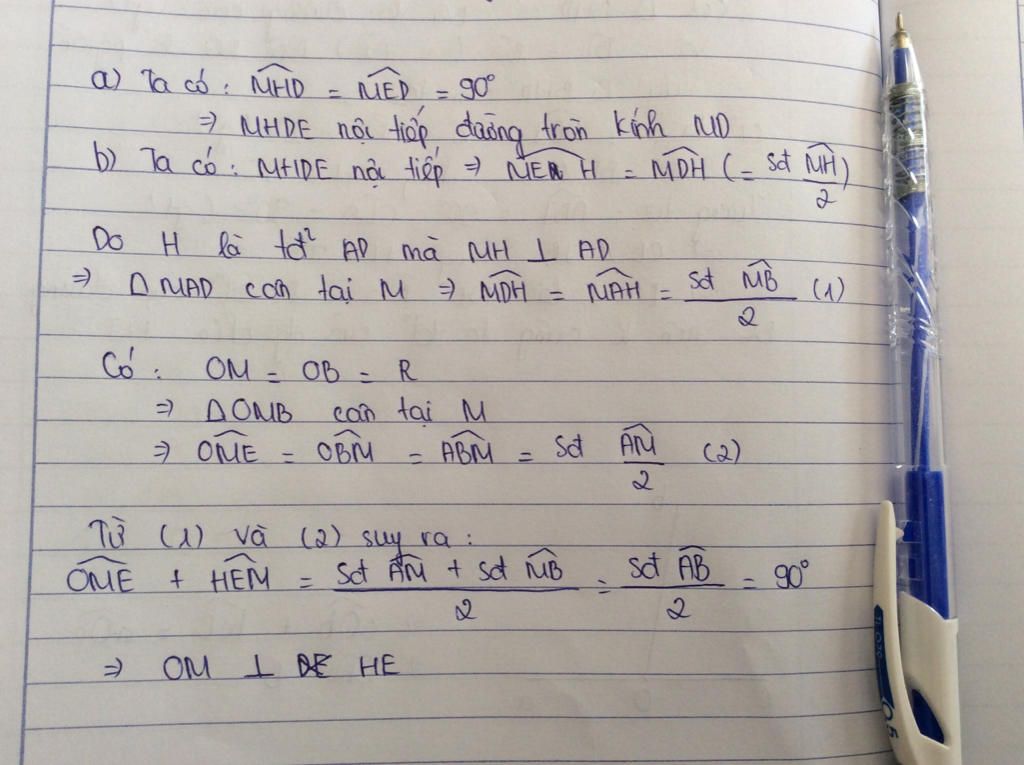 a) Ta có : \widehat{MHD} = \widehat{MED} = 90°
⇒ MHDE nội tiếp đường tròn kính MD
b) Ta có : MHDE nội tiếp ⇒ \widehat{MEH} = \widehat{MDH} (= \frac{sđ \widehat{MH}}{2})
Do H là tđ² AD mà MH ⊥ AD
⇒ Δ MAD cân tại M ⇒ \widehat{MDH} = \widehat{MAH} = \frac{sđ \widehat{MB}}{2} (1)
Có : OM = OB = R
⇒ Δ OMB cân tại M
⇒ \widehat{OME} = \widehat{OBM} = \widehat{ABM} = sđ \frac{\widehat{AM}}{2} (2)
Từ (1) và (2) suy ra :
\widehat{OME} + \widehat{HEM} = \frac{sđ \widehat{AM} + sđ \widehat{MB}}{2} = \frac{sđ \widehat{AB}}{2} = 90°
⇒ OM ⊥ HE